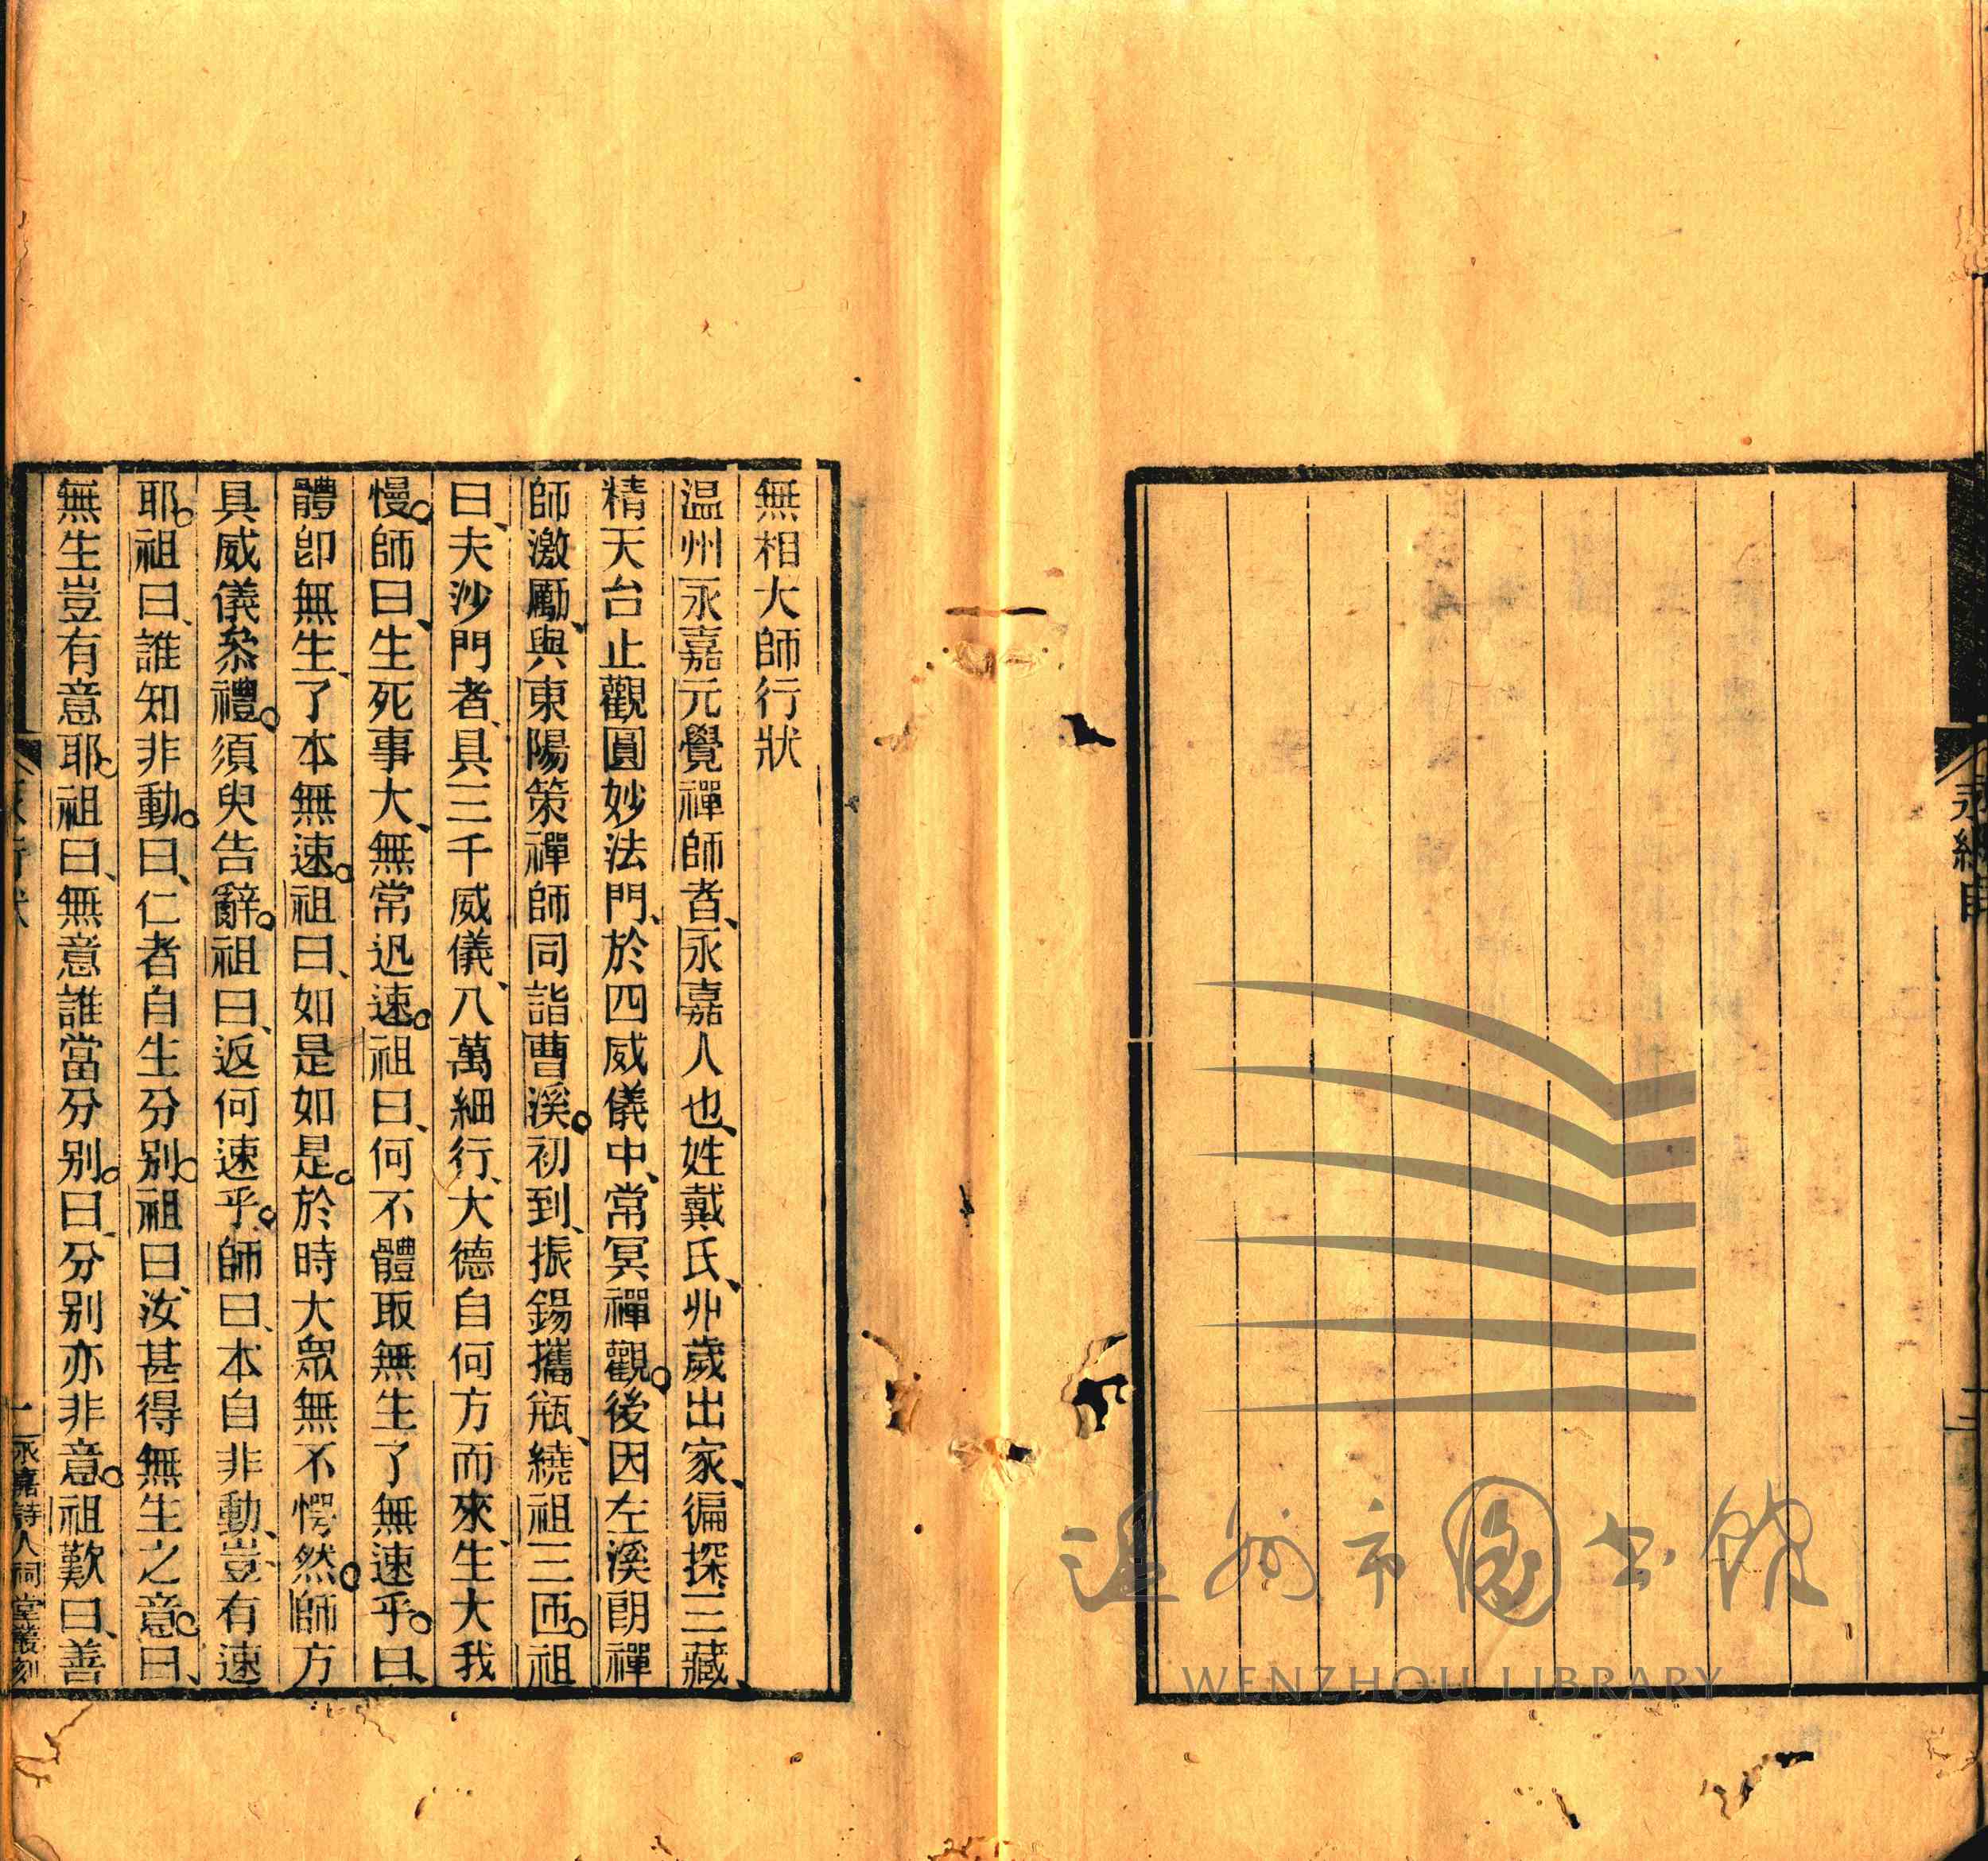 無相大師行狀
温州永嘉元覺禪師者、永嘉人也、姓戴氏、丱歲出家、徧探三藏、
精天台止觀圓妙法門、於四威儀中、常冥禪觀。後因左溪朗禪
師激勵、與東陽策禪師同詣曹溪。初到、振錫攜瓶、繞祖三匝。祖
曰、夫沙門者、具三千威儀、八萬細行、大德自何方而來、生大我
慢。師曰、生死事大、無常迅速。祖曰、何不體取無生了無速乎。曰、
體卽無生、了本無速。祖曰、如是如是。於時大眾無不愕然。師方
具威儀叅禮。須臾告辭。祖曰、返何速乎。師曰、本自非動、豈有速
耶。祖曰、誰知非動。曰、仁者自生分別。祖曰、汝甚得無生之意。曰、
無生豈有意耶。祖曰、無意誰當分別。曰、分別亦非意。祖歎曰、善
永嘉詩人祠堂叢刻
温州市图书馆
WENZHOU LIBRARY